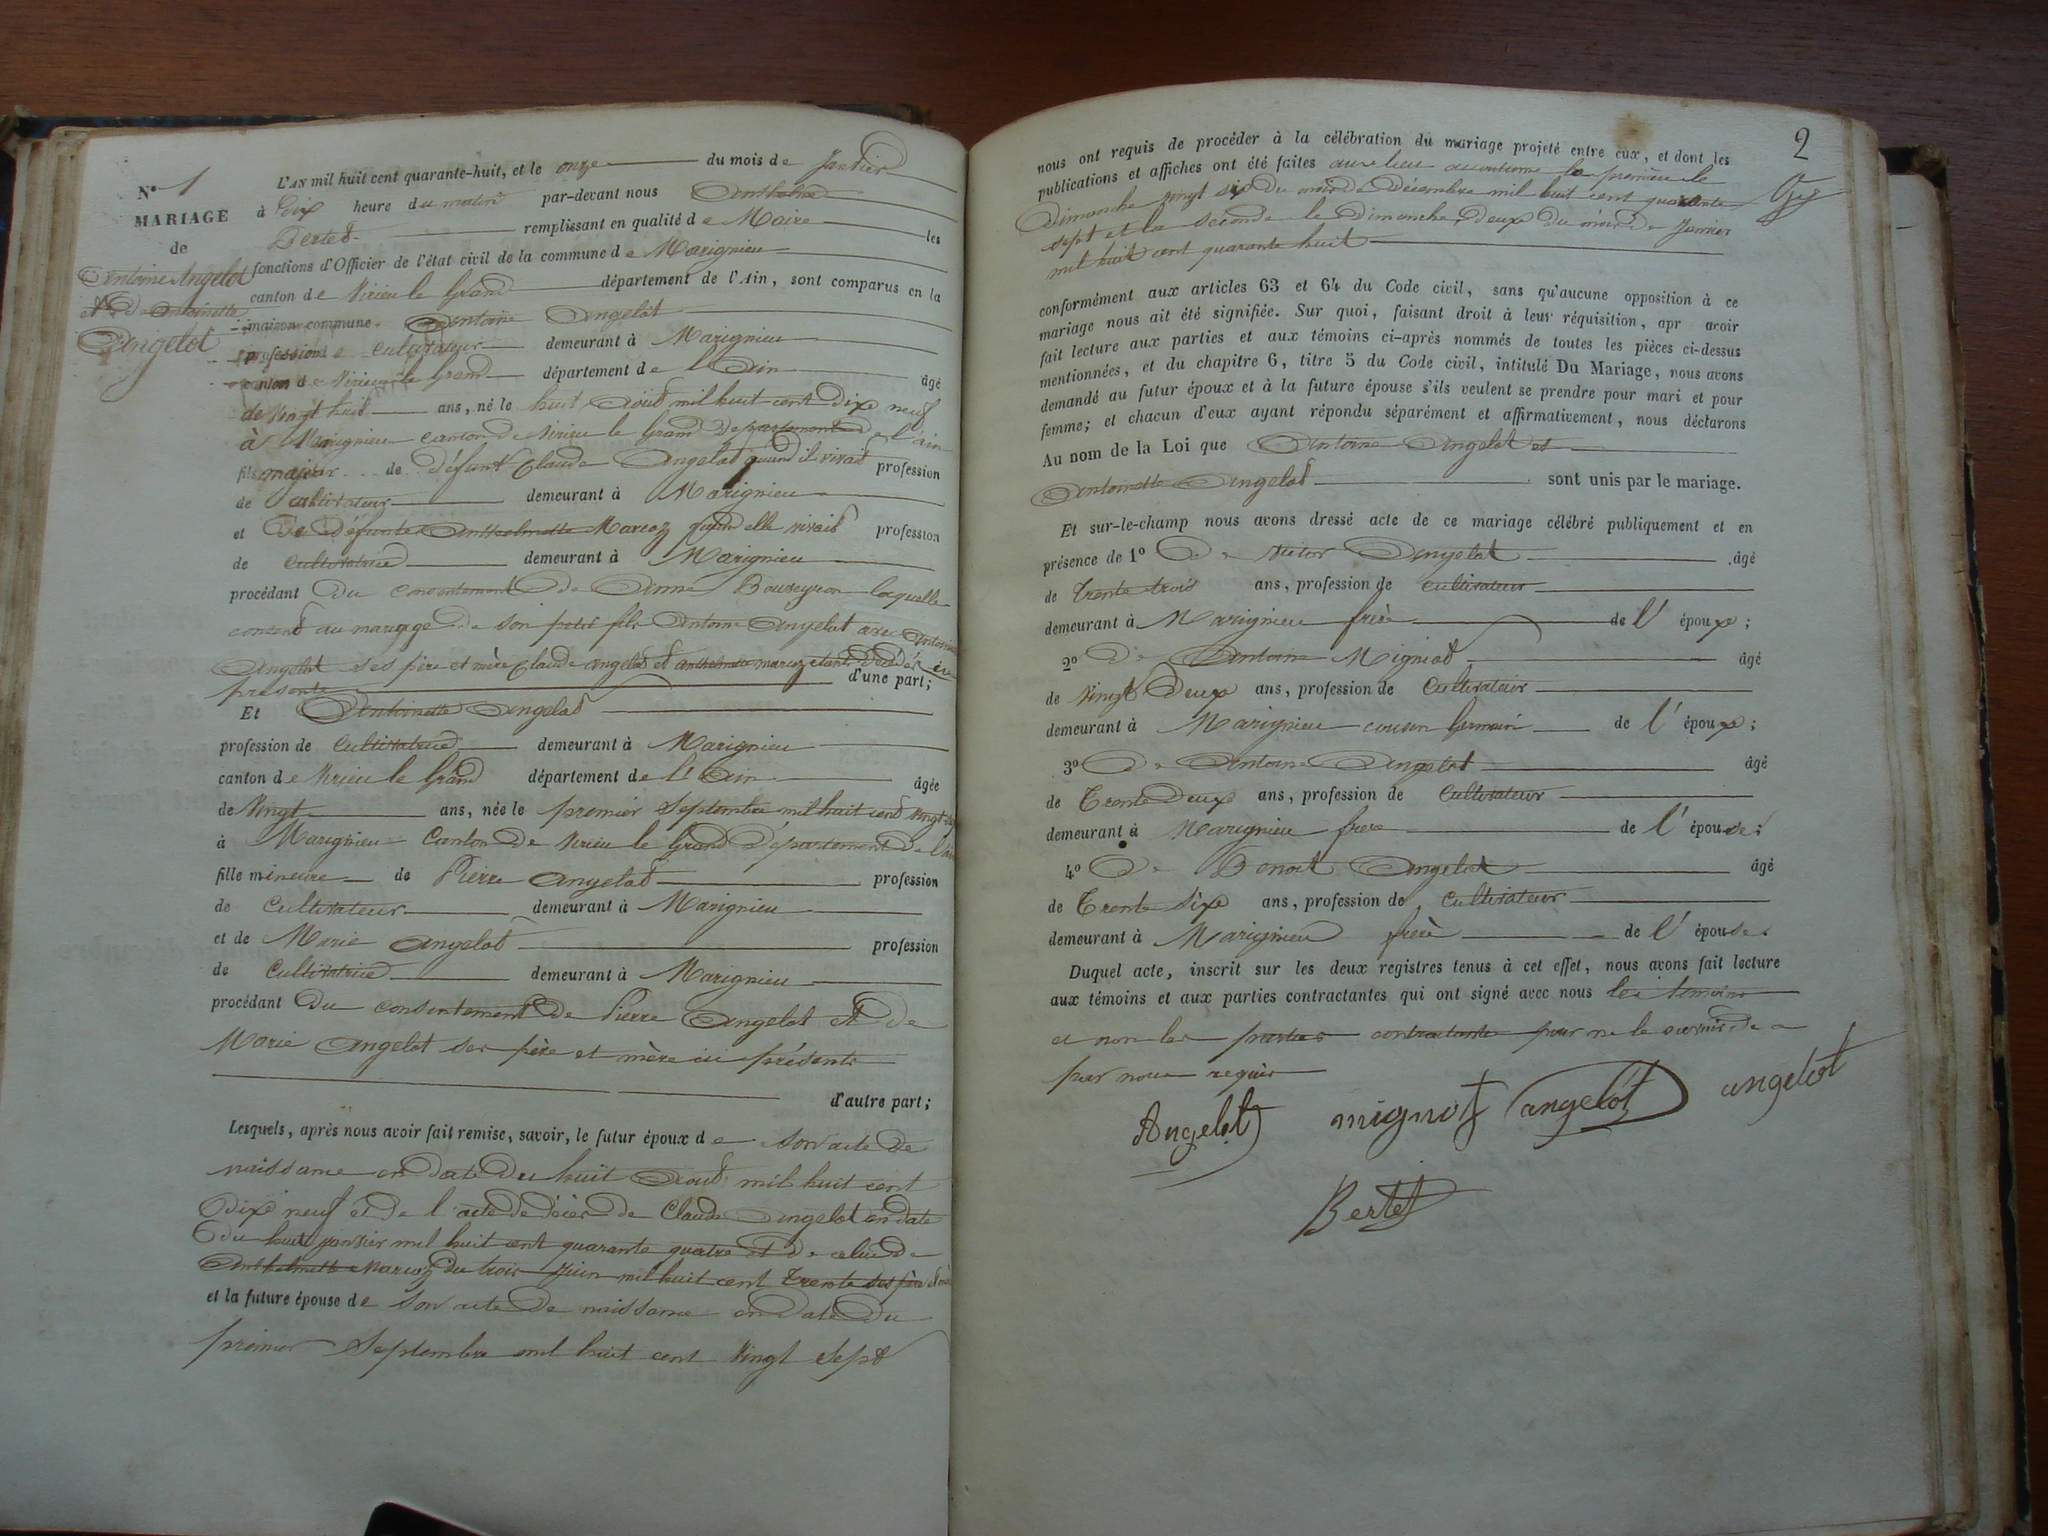 N° 1
MARIAGE
de
Antoine Angelot
et de Antoinette
Angelot
L'AN mil huit cent quarante-huit, et le onze du mois de Janvier
à Dix heure du matin par-devant nous Anthelme
Bertet remplissant en qualité de Maire les
fonctions d'Officier de l'état civil de la commune de Marignieu
canton de Virieu le Grand département de l'Ain, sont comparus en la
maison commune Antoine Angelot
profession de cultivateur demeurant à Marignieu
canton de Virieu le Grand département de l'Ain âgé
de Vingt huit ans, né le huit Aout mil huit cent dix neuf
à Marignieu canton de Virieu le Grand département de l'ain
fils majeur de défunt Claude Angelot quand il vivait profession
de cultivateur demeurant à Marignieu
et de Défunte Anthelmette Marcoz quand elle vivait profession
de cultivatrice demeurant à Marignieu
procédant du consentement de Anne laquelle
consent au mariage de son petit fils Antoine Angelot avec Antoinette
Angelot ses père et mère Claude angelot et anthelmette marcoz étant décédés ici
présente d'une part;
Et Antoinette Angelot
profession de cultivatrice demeurant à Marignieu
canton de Virieu le Grand département de l'Ain âgée
de Vingt ans, née le premier Septembre mil huit cent vingt sept
à Marignieu Canton de Virieu le Grand Département de l'ain
fille mineure de Pierre Angelot profession
de cultivateur demeurant à Marignieu
et de Marie Angelot profession
de cultivatrice demeurant à Marignieu
procédant du consentement de Pierre Angelot et de
Marie Angelot ses père et mère ici présents
d'autre part;
Lesquels, après nous avoir fait remise, savoir, le futur époux de son acte de
naissance en date du huit Aout mil huit cent
dix neuf et de l'acte de décès de Claude Angelot en date
du huit janvier mil huit cent quarante quatre et de celui de
Anthelmette Marcoz du trois Juin mil huit cent Trente ses père et mère
et la future épouse de son acte de naissance en date du
premier Septembre mil huit cent vingt sept
2
nous ont requis de procéder à la célébration du mariage projeté entre eux, et dont les
publications et affiches ont été faites aux lieu accoutumé la première le
Dimanche vingt six du mois de Décembre mil huit cent quarante
sept et la seconde le Dimanche deux du mois de Janvier
mil huit cent quarante huit
conformément aux articles 63 et 64 du Code civil, sans qu'aucune opposition à ce
mariage nous ait été signifiée. Sur quoi, faisant droit à leur réquisition, apr avoir
fait lecture aux parties et aux témoins ci-après nommés de toutes les pièces ci-dessus
mentionnées, et du chapitre 6, titre 5 du Code civil, intitulé Du Mariage, nous avons
demandé au futur époux et à la future épouse s'ils veulent se prendre pour mari et pour
femme; et chacun d'eux ayant répondu séparément et affirmativement, nous déclarons
Au nom de la Loi que Antoine Angelot et
Antoinette Angelot sont unis par le mariage.
Et sur-le-champ nous avons dressé acte de ce mariage célébré publiquement et en
présence de 1° De Victor Angelot âgé
de Trente trois ans, profession de cultivateur
demeurant à Marignieu frère de l'époux;
2° De Antoine Migniot âgé
de Vingt Deux ans, profession de cultivateur
demeurant à Marignieu cousin Germain de l'époux;
3° De Antoine Angelot âgé
de Trente Deux ans, profession de cultivateur
demeurant à Marignieu frère de l'épouse;
4° De Benoit Angelot âgé
de Trente Six ans, profession de cultivateur
demeurant à Marignieu frère de l'épouse
Duquel acte, inscrit sur les deux registres tenus à cet effet, nous avons fait lecture
aux témoins et aux parties contractantes qui ont signé avec nous les témoins
et non les parties contractantes pour ne le savoir de ce
par nous requis
Angelot mignot angelot angelot
Bertet